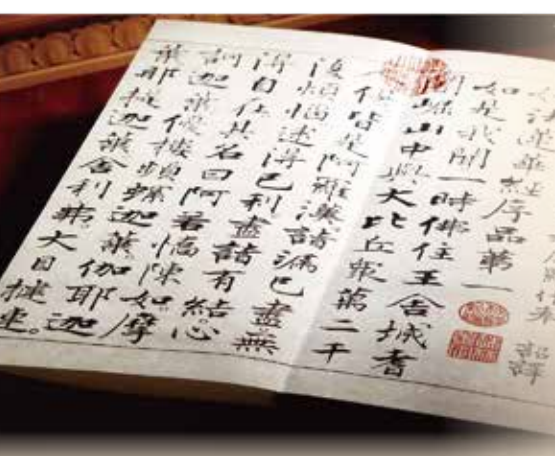 詔譯
妙法蓮華經序品第一
如是我聞一時佛住王舍城耆
崛山中與大比丘衆萬二千
人俱皆是阿羅漢諸漏已盡無
復煩惱逮得已利盡諸有結心
得自在其名曰阿若憍陳如摩
訶迦葉優樓頻螺迦葉伽耶迦
葉那提迦葉舍利弗大目揵連。